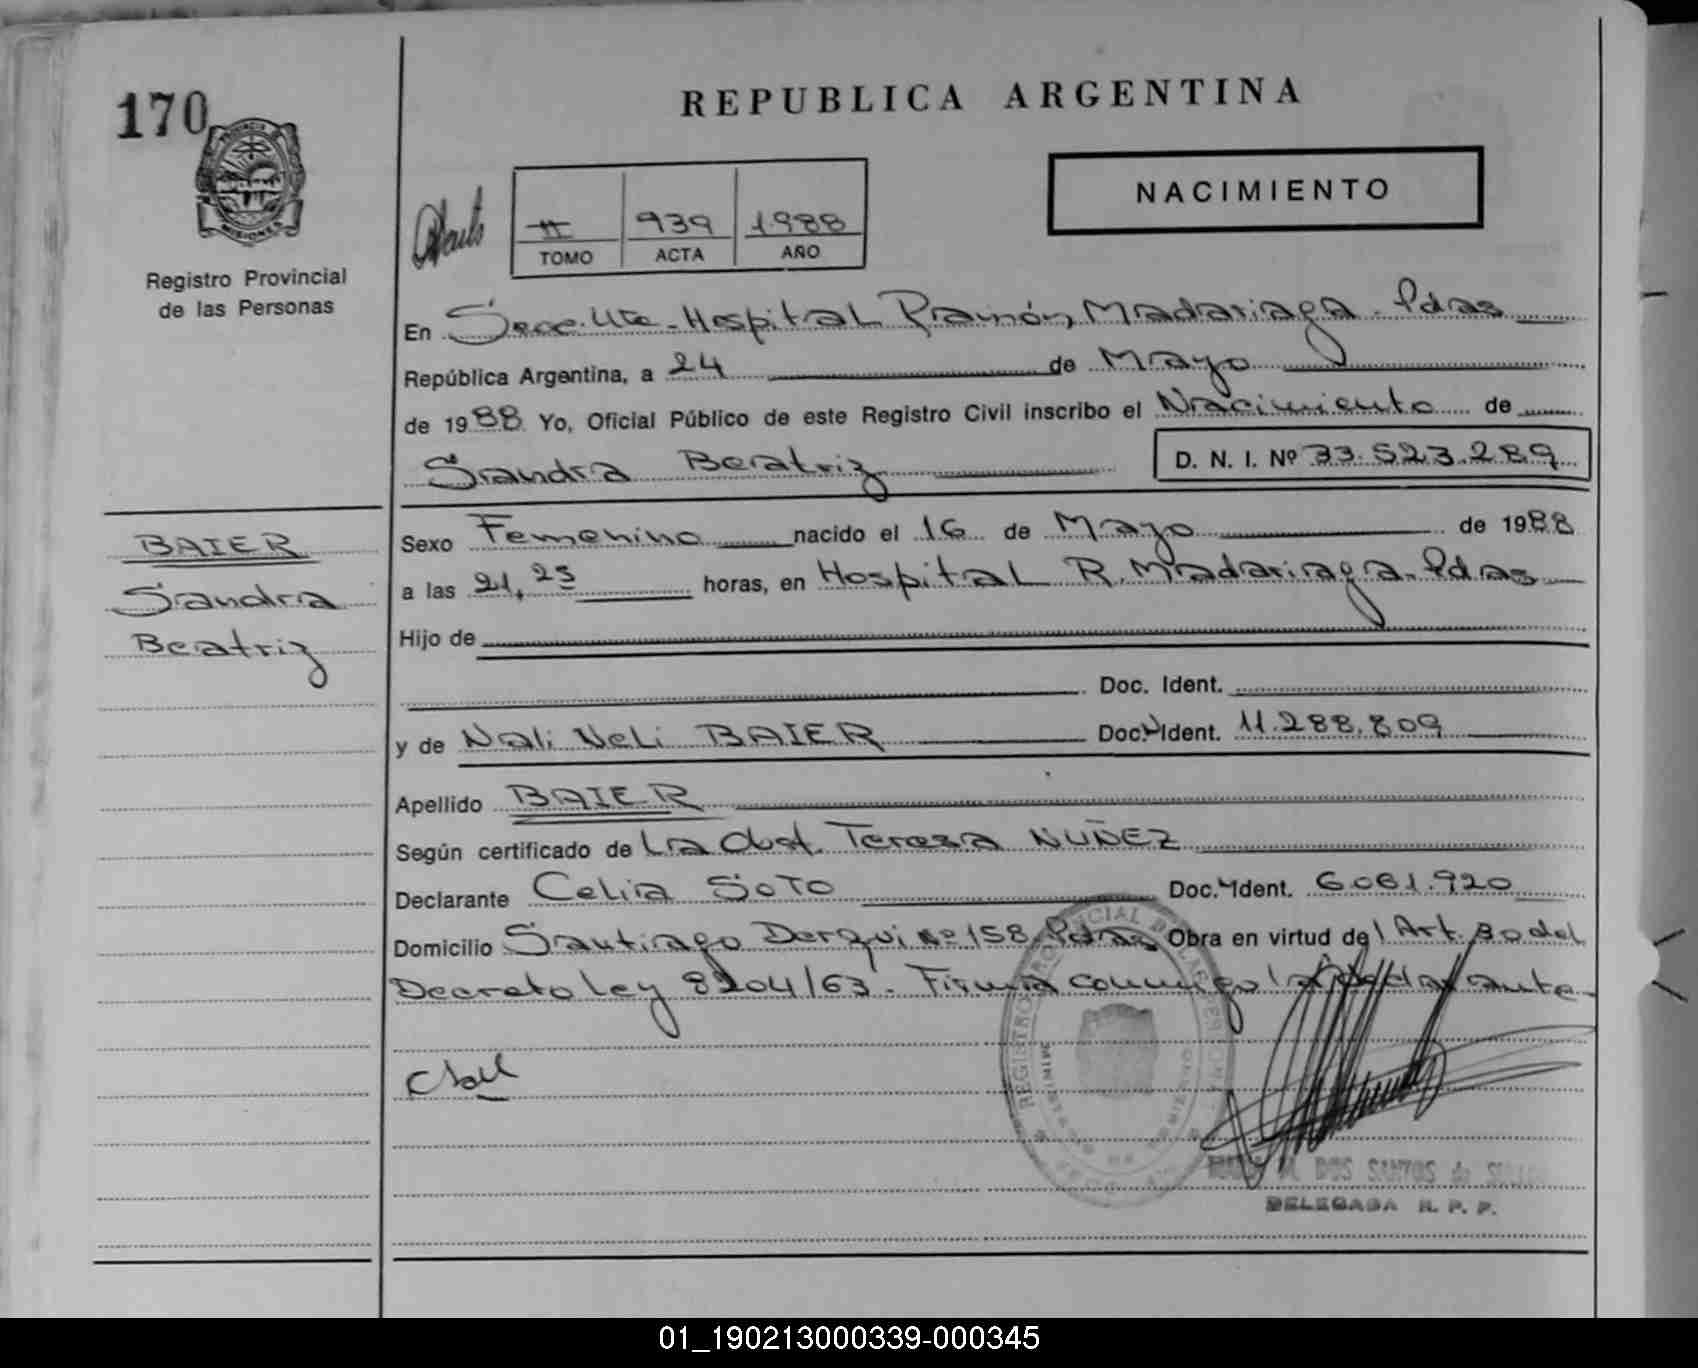 170
REPUBLICA ARGENTINA
PROVINCIA DE
MISIONES
Registro Provincial
de las Personas
II 939 1988
TOMO ACTA AÑO
NACIMIENTO
En Secc. Hospital Ramón Madariaga - Pdas
República Argentina, a 24 de Mayo
de 1988 Yo, Oficial Público de este Registro Civil inscribo el Nacimiento de
Sandra Beatriz D. N. I. Nº 33.523.289
BAIER
Sandra
Beatriz
Sexo Femenino nacido el 16 de Mayo de 1988
a las 21,25 horas, en Hospital R. Madariaga - Pdas
Hijo de
Doc. Ident.
y de Nali Neli BAIER Doc. Ident. 11.288.809
Apellido BAIER
Según certificado de La Obst. Teresa NUÑEZ
Declarante Celia SOTO Doc. Ident. 6.061.920
Domicilio Santiago Derqui nº 158 Pdas Obra en virtud del Art. 30 del
Decreto Ley 8204/63. Firma conmigo la declarante-
REGISTRO PROVINCIAL DE LAS PERSONAS
M. DOS SANTOS de
DELEGADA R. P. P.
01_190213000339-000345